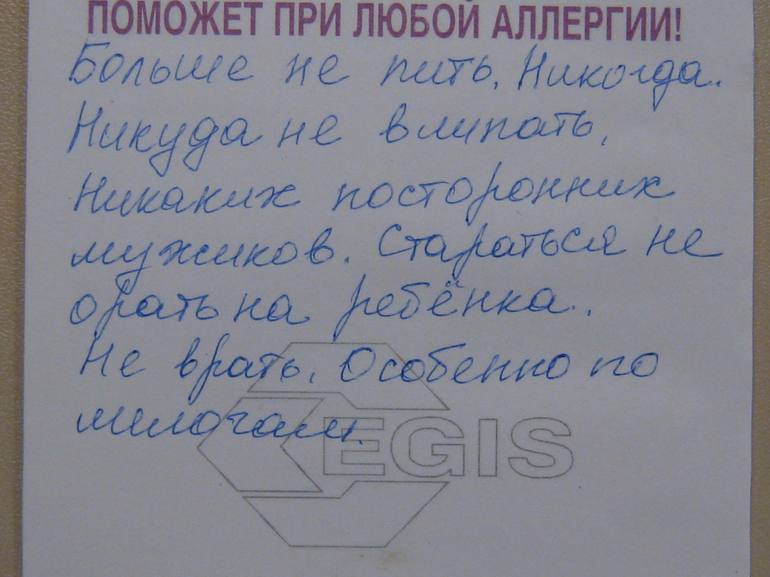 ПОМОЖЕТ ПРИ ЛЮБОЙ АЛЛЕРГИИ!
Больше не пить. Никогда.
Никуда не влипать.
Никаких посторонних
мужиков. Стараться не
орать на ребёнка.
Не врать. Особенно по
мелочам.
EGIS